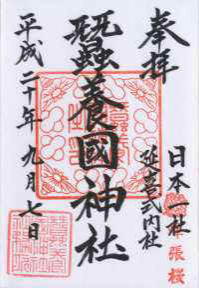 奉拝
日本一社
延喜式内社
蠶養國神社
平成二十年九月七日
張桜